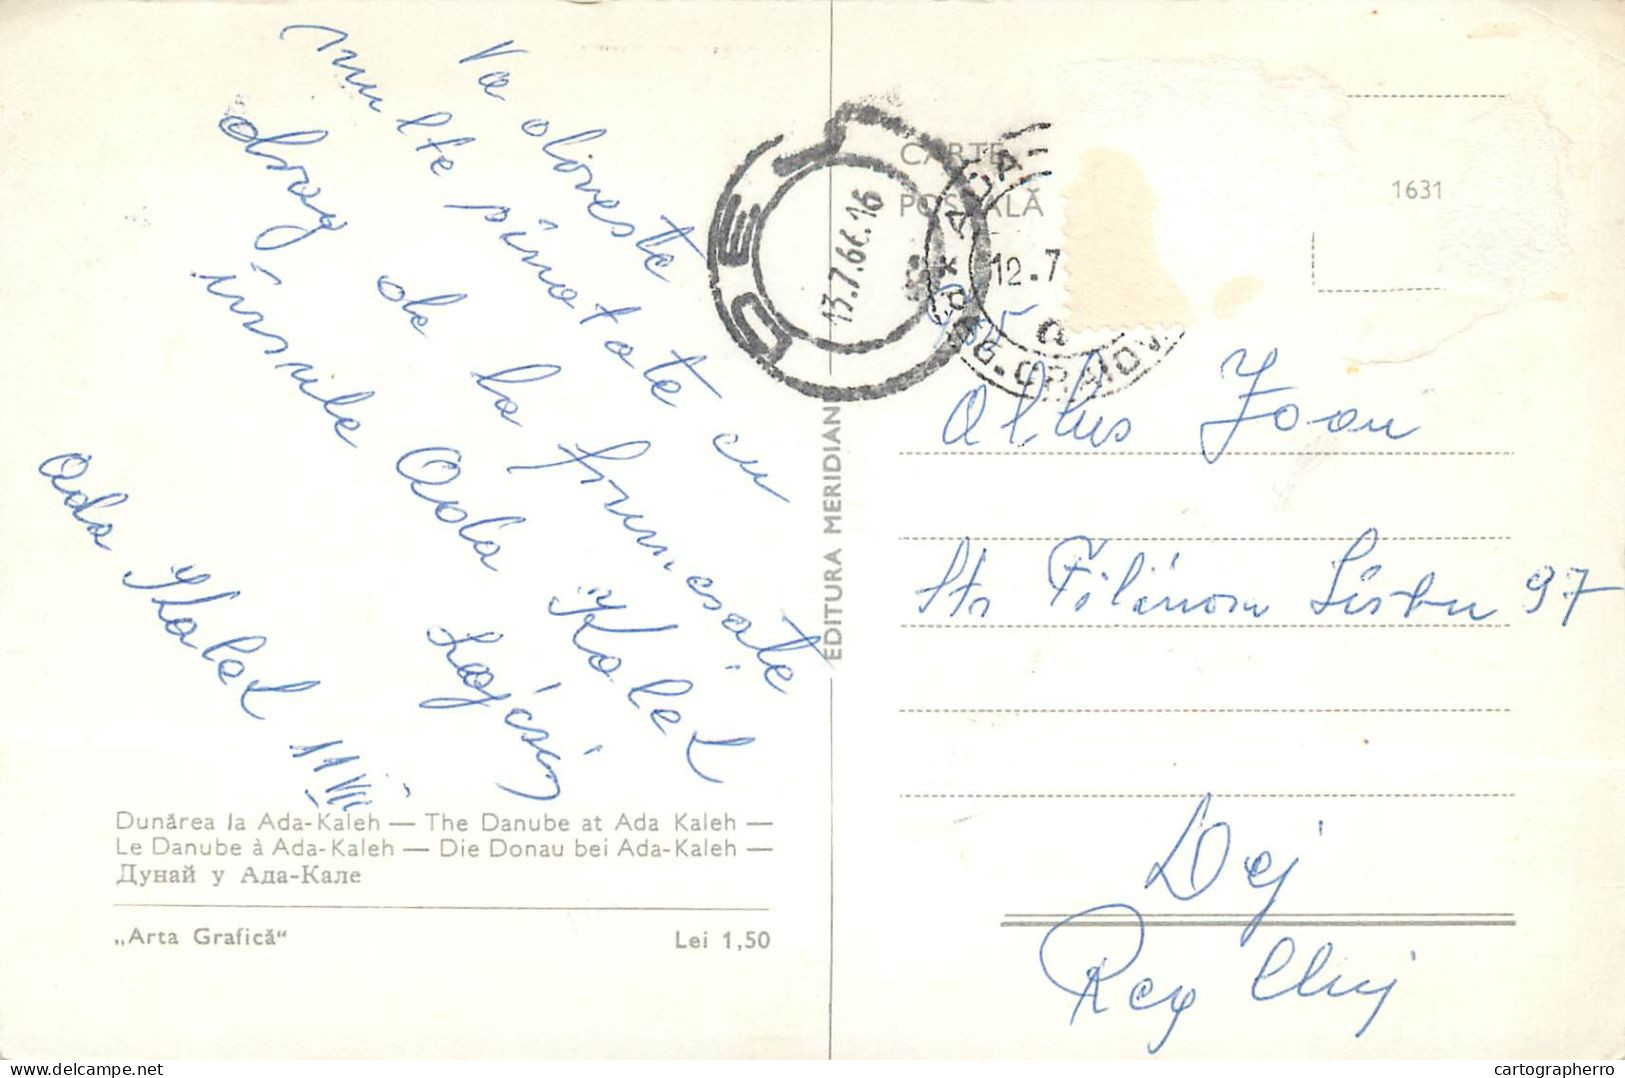 Va doreste
multe sănatate cu
drag de la frumesăte
insule Ada Kaleh
Lojcsi
Ada Kaleh 11 VII
Dunărea la Ada-Kaleh — The Danube at Ada Kaleh —
Le Danube à Ada-Kaleh — Die Donau bei Ada-Kaleh —
Дунай у Ада-Кале
„Arta Grafică“ Lei 1,50
EDITURA MERIDIANE
DEJ
13.7.66.16
CARTE
POȘTALĂ
ADA
12.7
a
REG. CRAIOV
1631
Albus Joan
Str Filimon Sîrbu 97
Dej
Reg Cluj
cartographerro